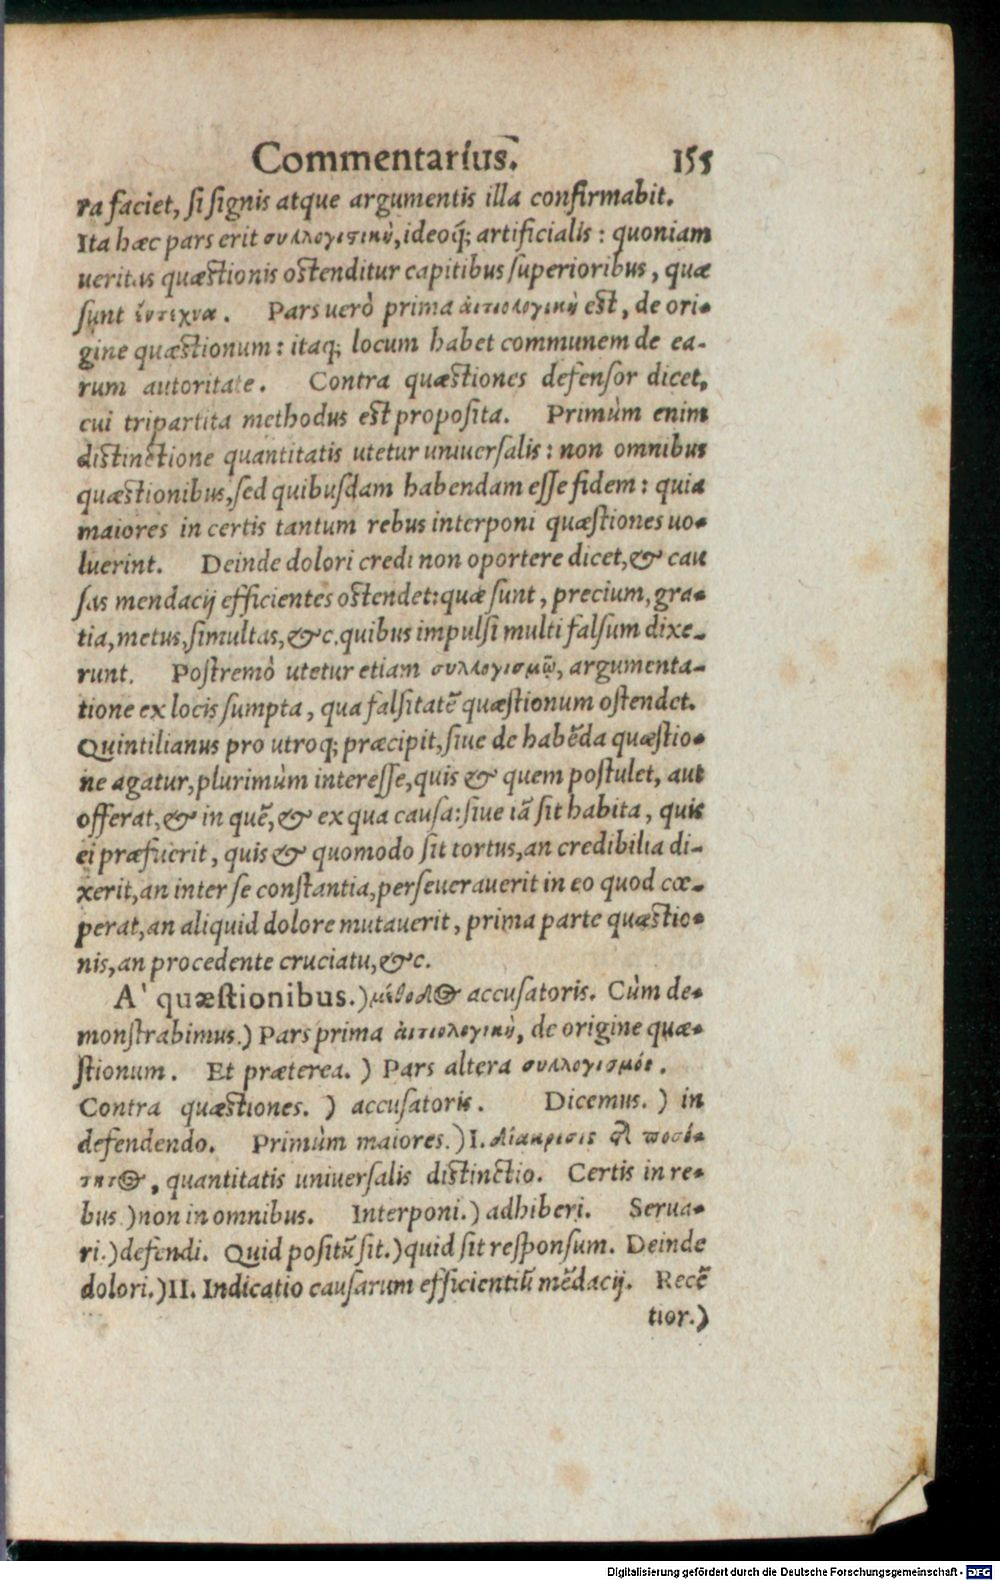 Commentarius. 155
ra faciet, si signis atque argumentis illa confirmabit.
Ita hæc pars erit συλλογιστική, ideoq́; artificialis: quoniam
ueritas quæstionis ostenditur capitibus superioribus, quæ
sunt ἔντεχνα. Pars uerò prima αἰτιολογική est, de ori-
gine quæstionum: itaq; locum habet communem de ea-
rum autoritate. Contra quæstiones defensor dicet,
cui tripartita methodus est proposita. Primùm enim
distinctione quantitatis utetur uniuersalis: non omnibus
quæstionibus, sed quibusdam habendam esse fidem: quia
maiores in certis tantum rebus interponi quæstiones uo-
luerint. Deinde dolori credi non oportere dicet, & cau
sas mendacij efficientes ostendet: quæ sunt, precium, gra-
tia, metus, simultas, &c. quibus impulsi multi falsum dixe-
runt. Postremò utetur etiam συλλογισμῷ, argumenta-
tione ex locis sumpta, qua falsitatẽ quæstionum ostendet.
Quintilianus pro utroq; præcipit, siue de habẽda quæstio-
ne agatur, plurimùm interesse, quis & quem postulet, aut
offerat, & in quẽ, & ex qua causa: siue iã sit habita, quis
ei præfuerit, quis & quomodo sit tortus, an credibilia di-
xerit, an inter se constantia, perseuerauerit in eo quod cœ-
perat, an aliquid dolore mutauerit, prima parte quæstio-
nis, an procedente cruciatu, &c.
A' quæstionibus.) μέθοδος accusatoris. Cùm de-
monstrabimus.) Pars prima αἰτιολογική, de origine quæ-
stionum. Et præterea.) Pars altera συλλογισμός.
Contra quæstiones.) accusatoris. Dicemus.) in
defendendo. Primùm maiores.) I. διάκρισις τῆς ποσό-
τητος, quantitatis uniuersalis distinctio. Certis in re-
bus.) non in omnibus. Interponi.) adhiberi. Serua-
ri.) defendi. Quid positũ sit.) quid sit responsum. Deinde
dolori.) II. Indicatio causarum efficientiũ mẽdacij. Recẽ
tior.)
Digitalisierung gefördert durch die Deutsche Forschungsgemeinschaft - DFG